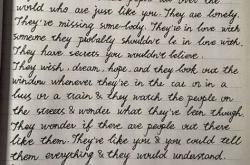 world who are just like you. They are lonely.
They're missing some-body. They're in love with
someone they probably shouldn't be in love with.
They have secrets you wouldn't believe.
They wish, dream, hope, and they look out the
window whenever they're in the car or in a
bus or a train & they watch the people on
the streets & wonder what they've been through.
They wonder if there are people out there
like them. They're like you & you could tell
them everything & they would understand.